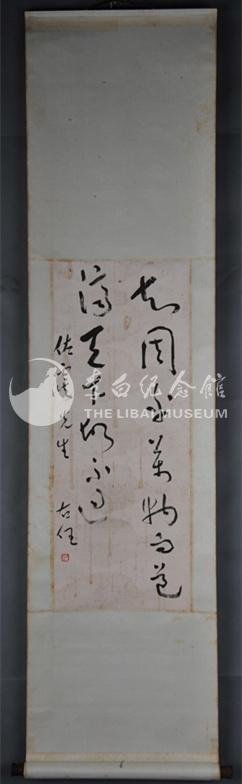 知周乎萬物而道
濟天下故不過
佐℃先生
右任
李白纪念馆
THE LIBAI MUSEUM